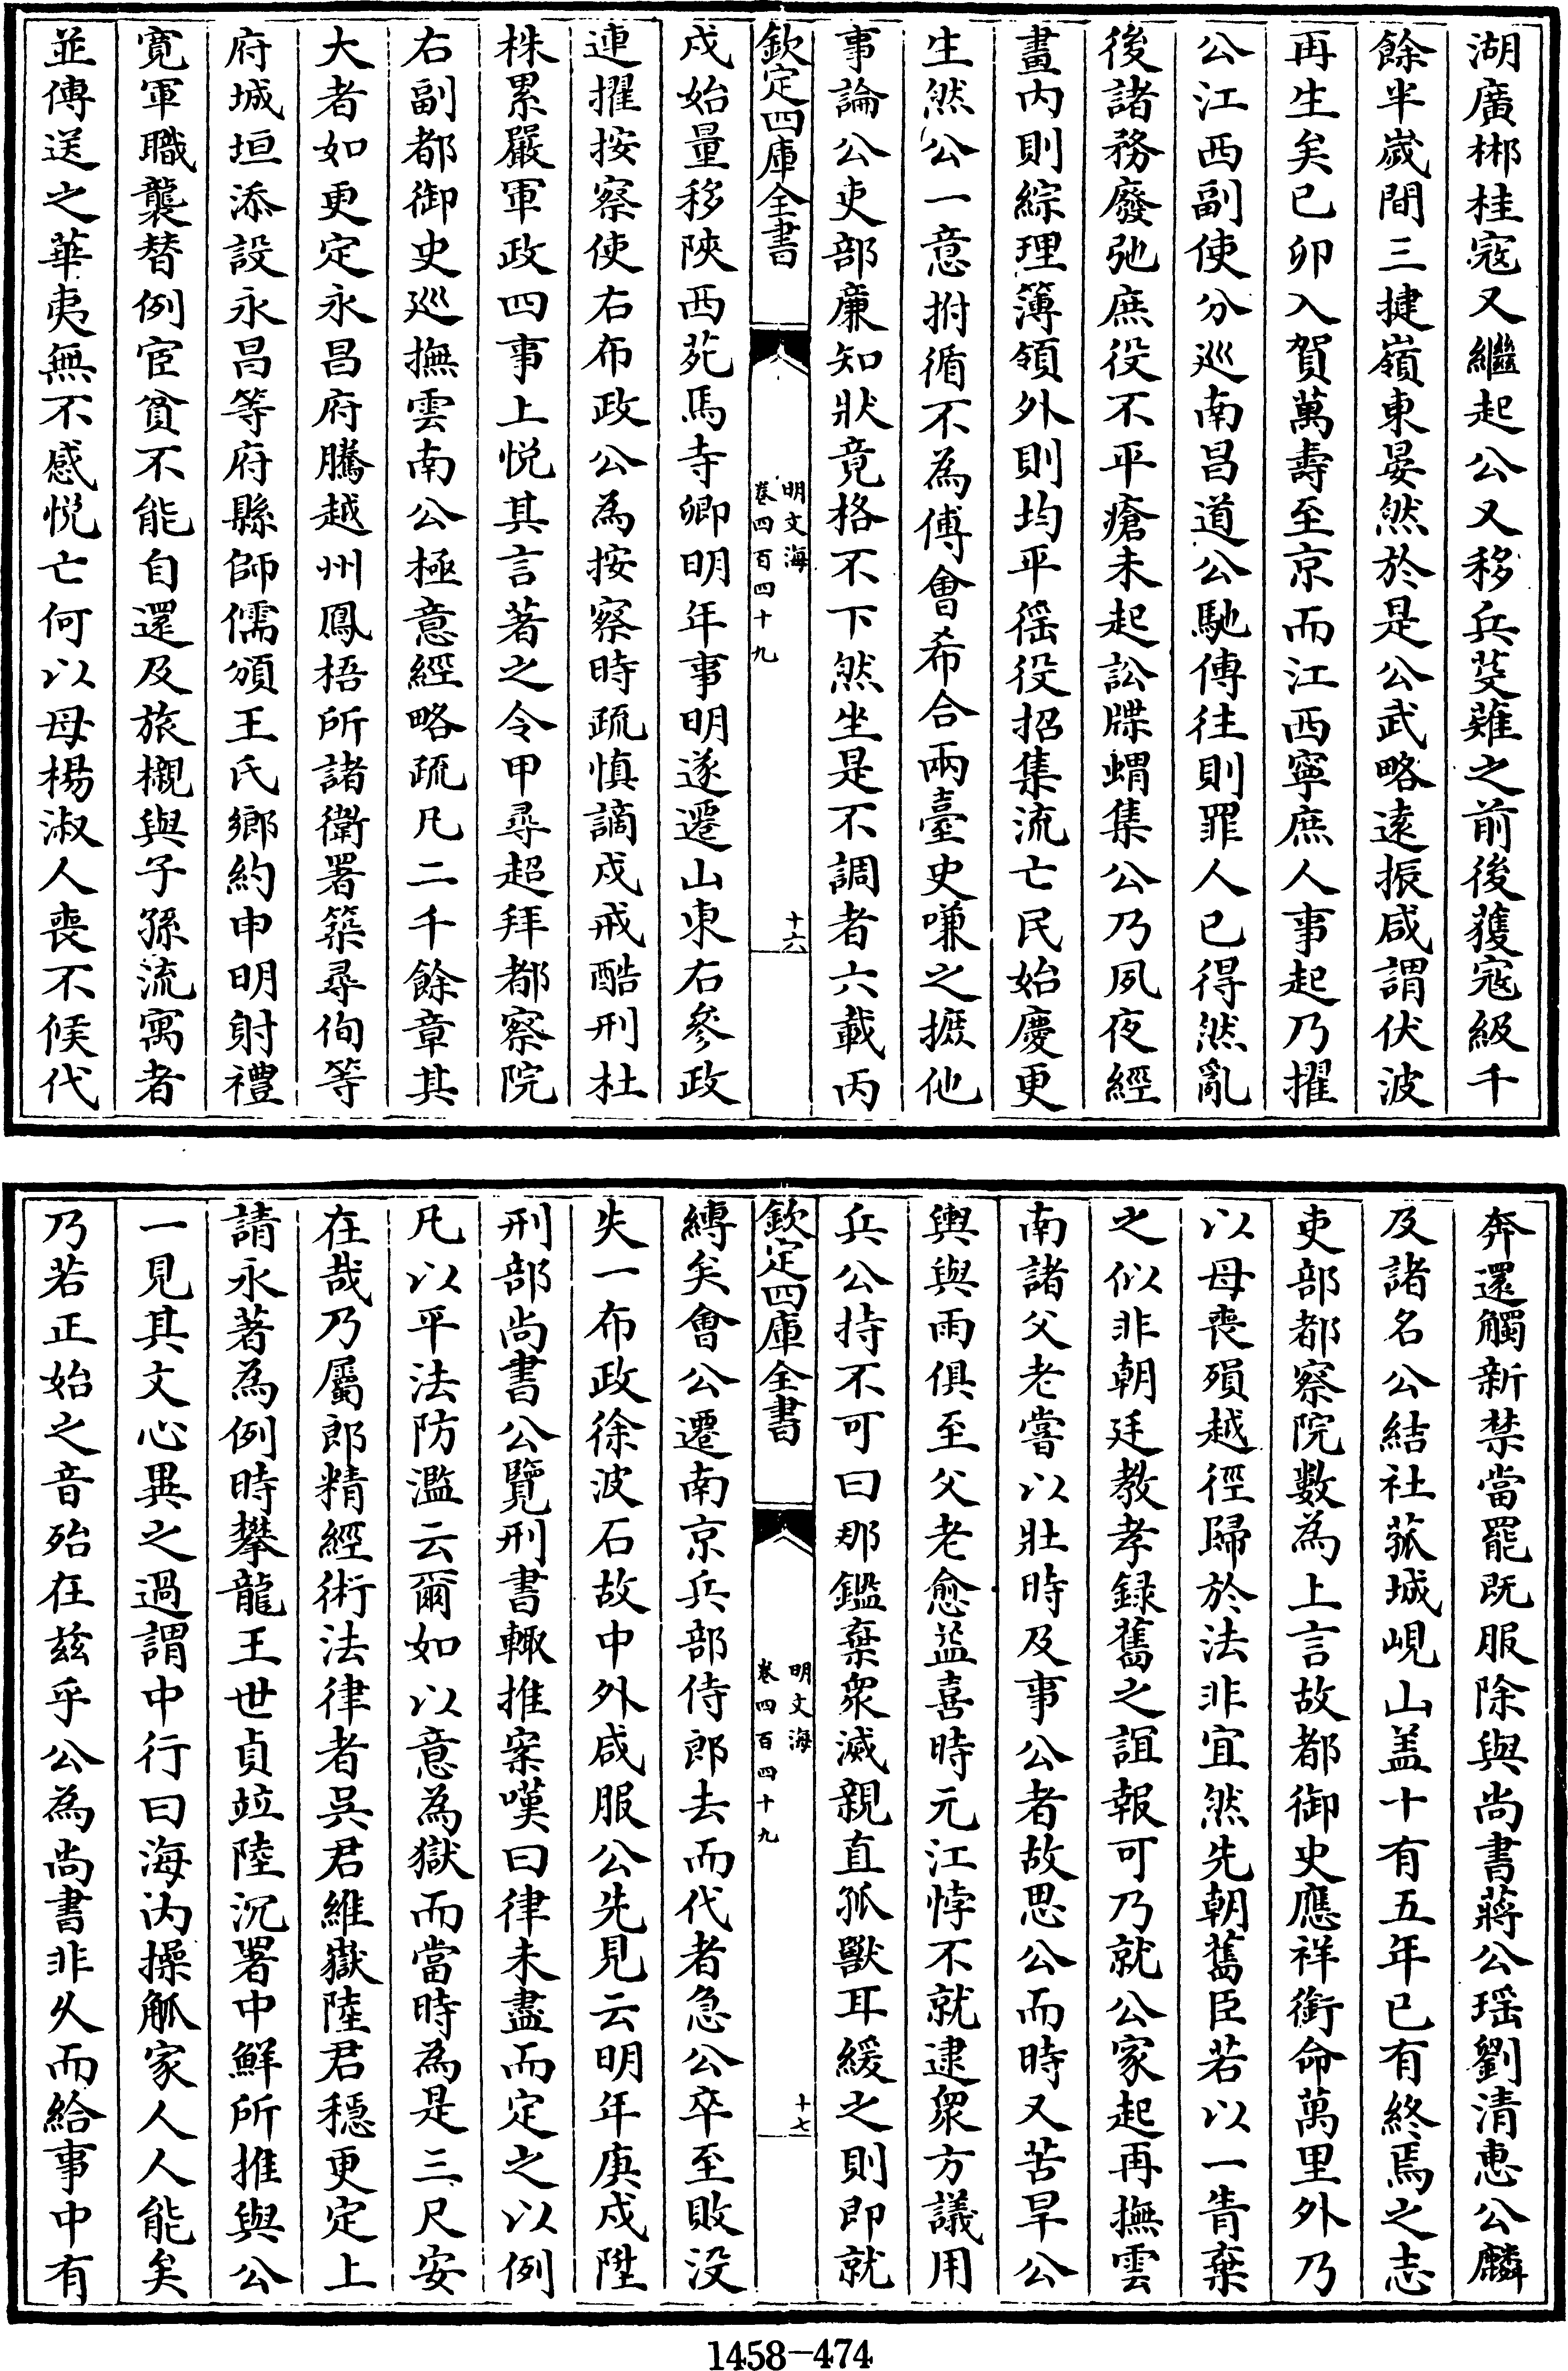 湖廣郴桂寇又繼起公又移兵芟薙之前後獲寇級千
餘半嵗間三揵嶺東晏然於是公武略逺振咸謂伏波
再生矣已卯入賀萬壽至京而江西寧庶人事起乃擢
公江西副使分巡南昌道公馳傳往則罪人已得然亂
後諸務廢弛庶役不平瘡未起訟牒蝟集公乃夙夜經
畫内則綜理簿領外則均平徭役招集流亡民始慶更
生然公一意拊循不為傅會希合兩臺史嗛之摭他
事論公吏部亷知狀竟格不下然坐是不調者六載丙
欽定四庫全書
明文海
卷四百四十九
十六
戍始量移陜西苑馬寺卿明年事明遂遷山東右參政
連擢按察使右布政公為按察時疏慎謫戍戒酷刑杜
株累嚴軍政四事上悦其言著之令甲尋超拜都察院
右副都御史巡撫雲南公極意經略疏凡二千餘章其
大者如更定永昌府騰越州鳳梧所諸衛署築尋甸等
府城垣添設永昌等府縣師儒頒王氏鄉約申明射禮
寛軍職襲替例宦貧不能自還及旅櫬與子孫流寓者
並傳送之華夷無不感悦亡何以母楊淑人喪不候代
奔還觸新禁當罷既服除與尚書蔣公瑶劉清惠公麟
及諸名公結社菰城峴山盖十有五年已有終焉之志
吏部都察院數為上言故都御史應祥銜命萬里外乃
以母喪殞越徑歸於法非宜然先朝舊臣若以一眚棄
之似非朝廷教孝録舊之誼報可乃就公家起再撫雲
南諸父老嘗以壯時及事公者故思公而時又苦旱公
輿與雨俱至父老愈益喜時元江悖不就逮衆方議用
兵公持不可曰那鑑棄衆滅親直孤獸耳緩之則即就
欽定四庫全書
明文海
卷四百四十九
十七
縛矣會公遷南京兵部侍郎去而代者急公卒至敗没
失一布政徐波石故中外咸服公先見云明年庚戍陞
刑部尚書公覽刑書輙推案嘆曰律未盡而定之以例
凡以平法防濫云爾如以意為獄而當時為是三尺安
在哉乃屬郎精經術法律者吳君維嶽陸君穩更定上
請永著為例時攀龍王世貞竝陸沉署中鮮所推與公
一見其文心異之過謂中行曰海内操觚家人人能矣
乃若正始之音殆在兹乎公為尚書非久而給事中有
1458-474